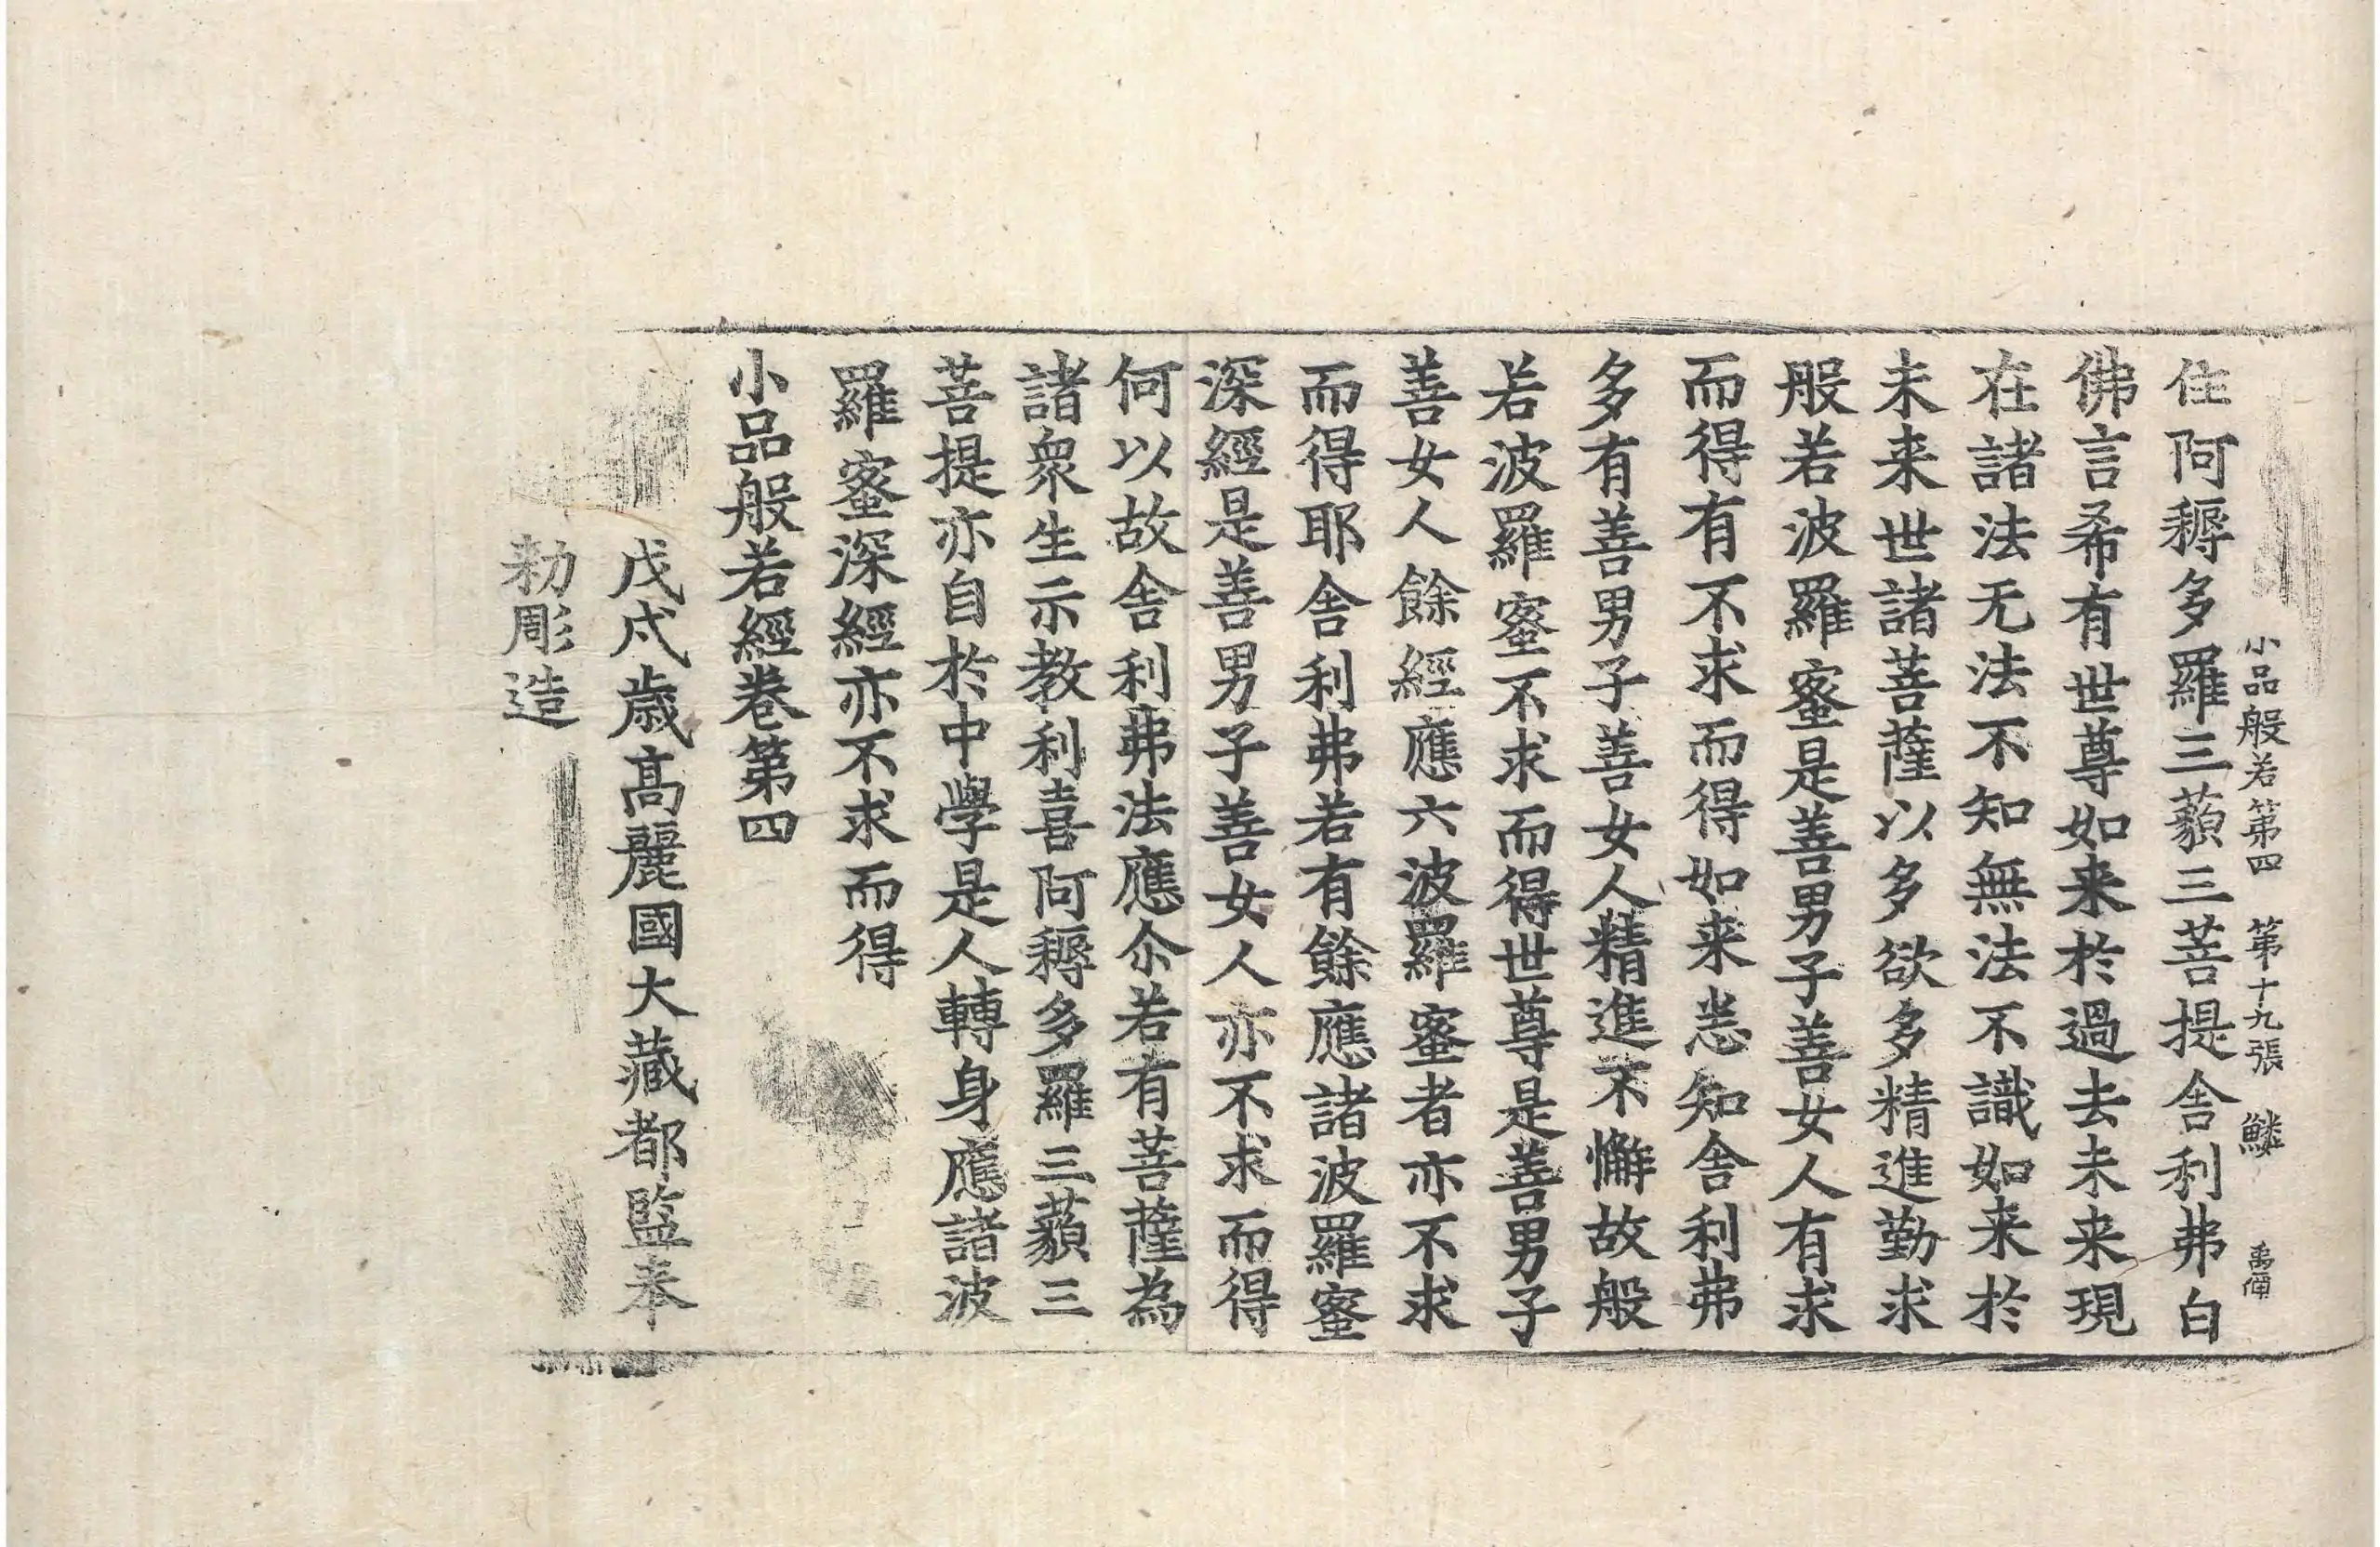 小品般若第四 第十九張 鱗
住阿耨多羅三藐三菩提舍利弗白
佛言希有世尊如来於過去未来現
在諸法无法不知無法不識如来於
未来世諸菩薩以多欲多精進勤求
般若波羅蜜是善男子善女人有求
而得有不求而得如来悉知舍利弗
多有善男子善女人精進不懈故般
若波羅蜜不求而得世尊是善男子
善女人餘經應六波羅蜜者亦不求
而得耶舍利弗若有餘應諸波羅蜜
深經是善男子善女人亦不求而得
何以故舍利弗法應尒若有菩薩為
諸衆生示教利喜阿耨多羅三藐三
菩提亦自於中學是人轉身應諸波
羅蜜深經亦不求而得
小品般若經卷第四
戊戌歲高麗國大藏都監奉
勅彫造